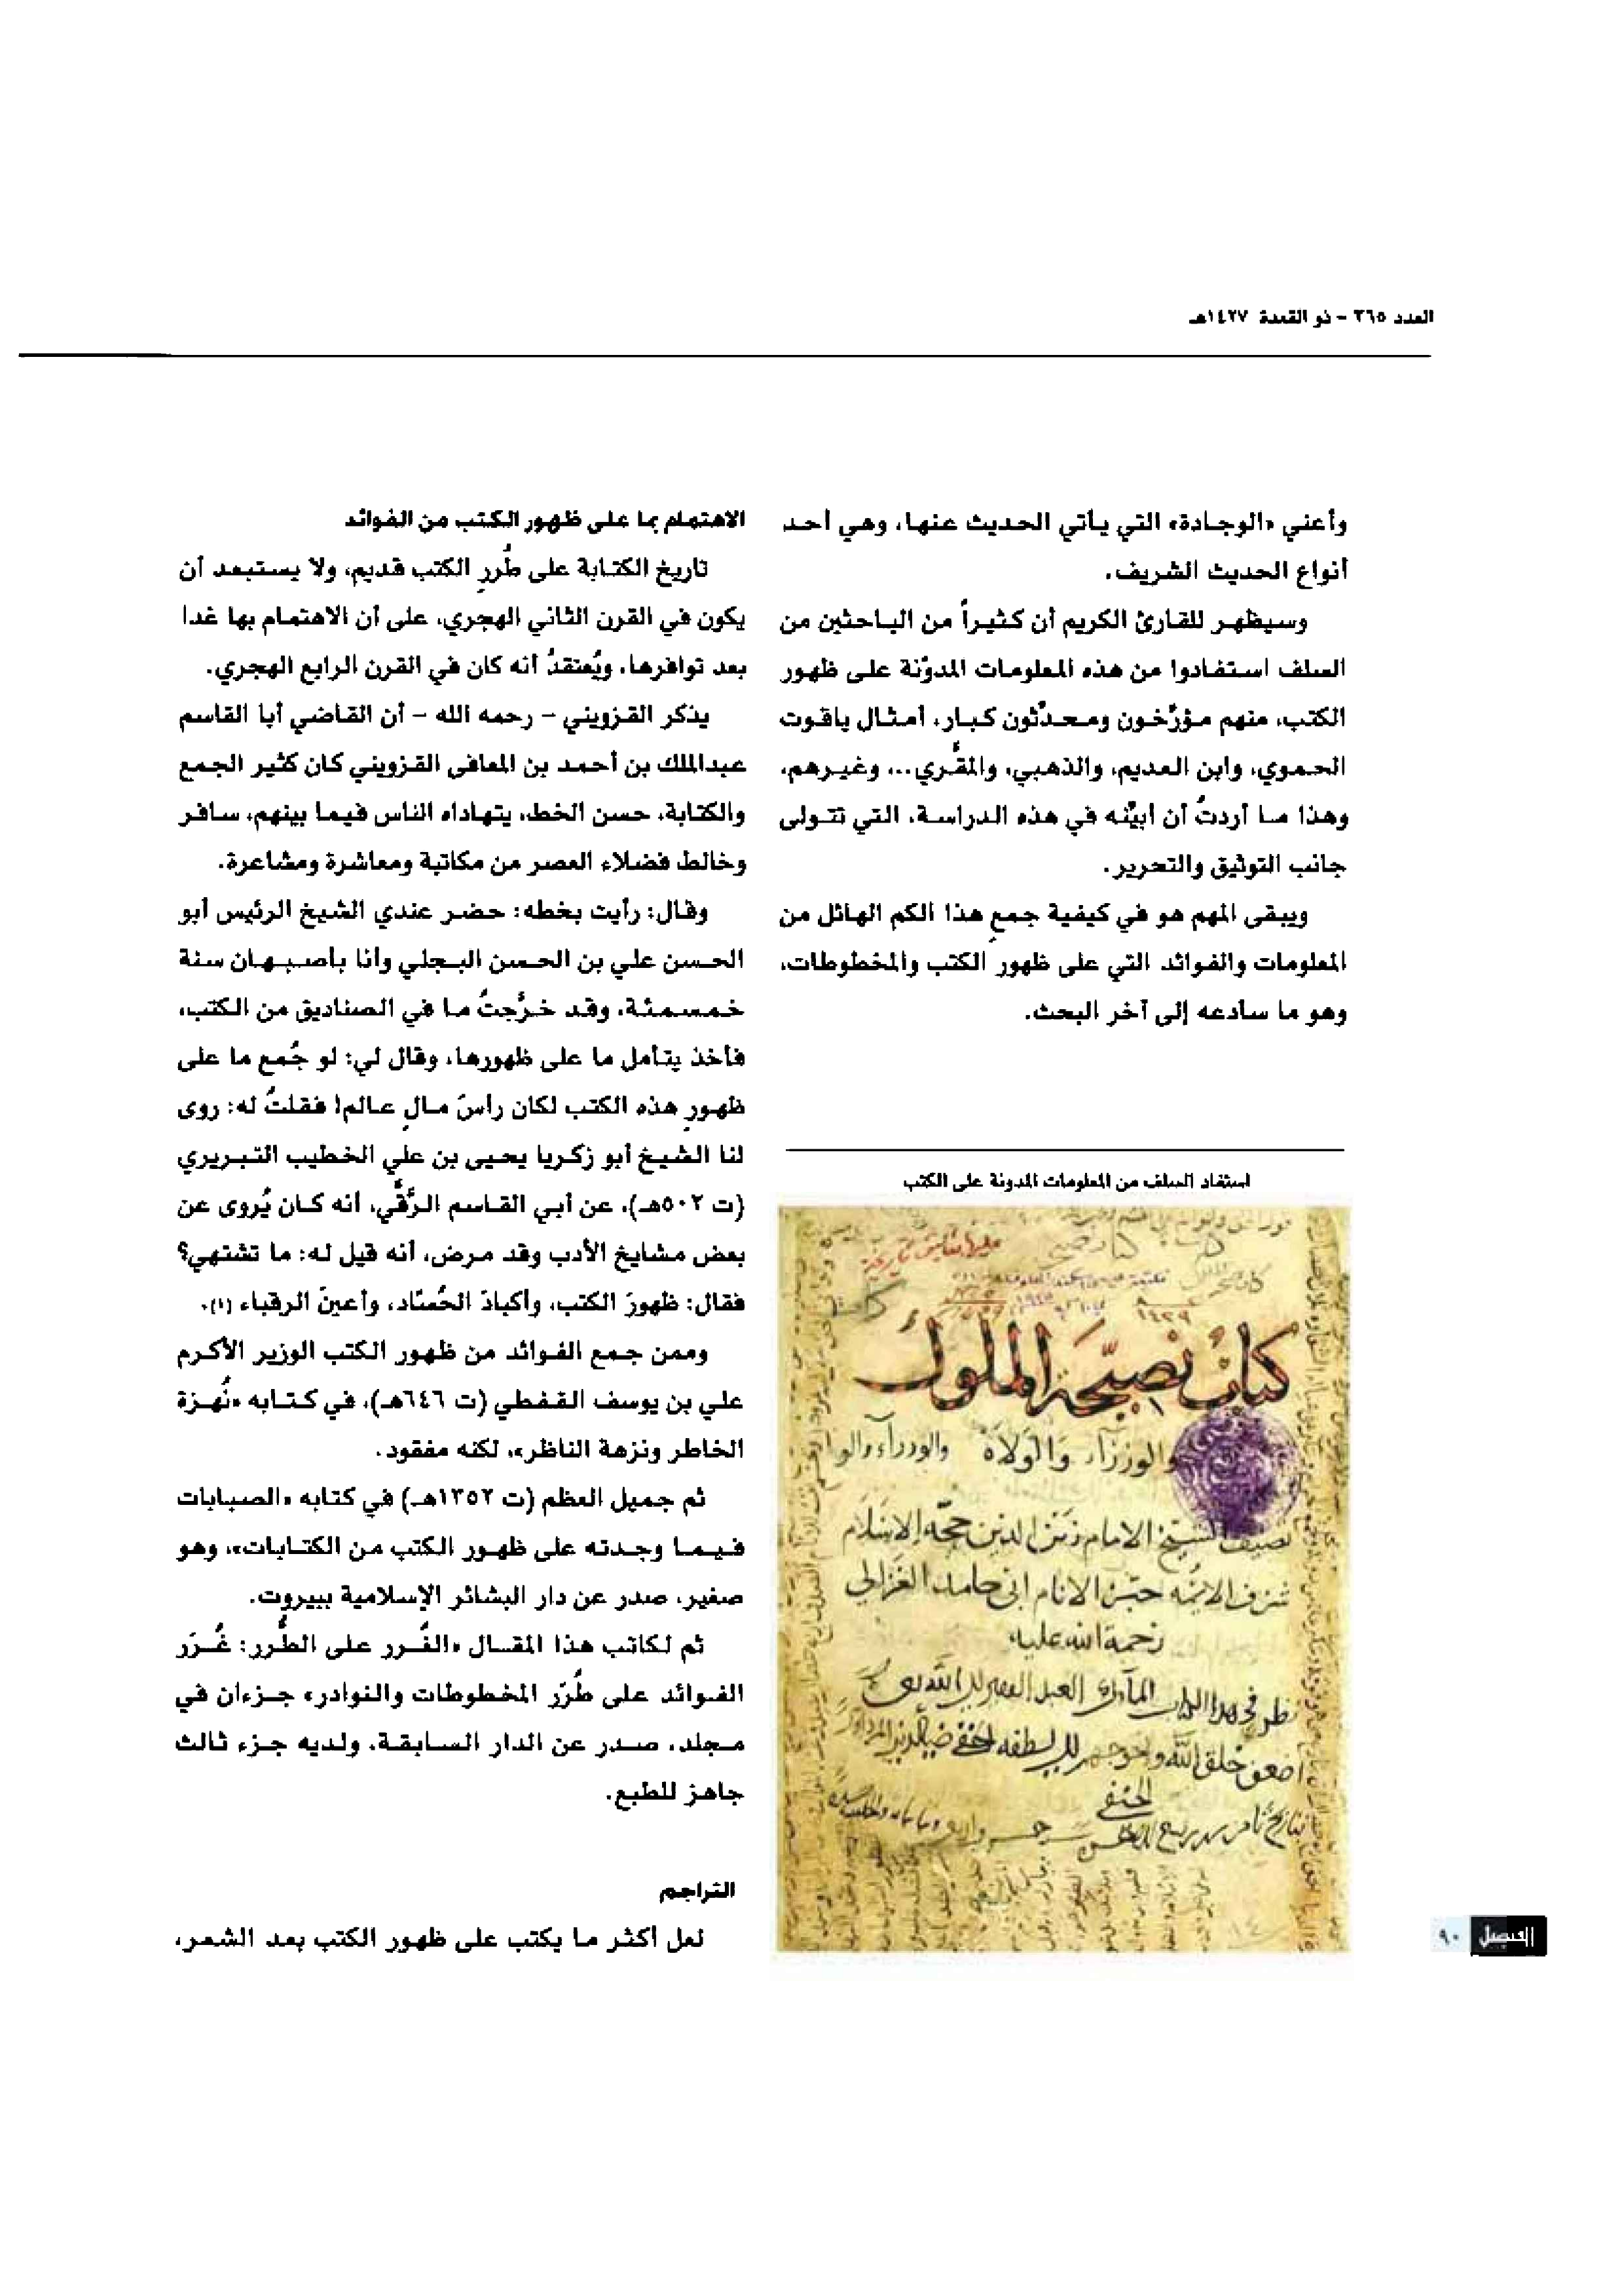 العدد ٣٦٥ - ذو القعدة ١٤٢٧هـ
وأعني «الوجادة» التي يأتي الحديث عنها، وهي أحد
أنواع الحديث الشريف.
وسيظهر للقارئ الكريم أن كثيراً من الباحثين من
السلف استفادوا من هذه المعلومات المدوّنة على ظهور
الكتب، منهم مؤرّخون ومحدّثون كبار، أمثال ياقوت
الحموي، وابن العديم، والذهبي، والمقَّري... وغيرهم،
وهذا ما أردتُ أن أبيّنه في هذه الدراسة، التي تتولى
جانب التوثيق والتحرير.
ويبقى المهم هو في كيفية جمعِ هذا الكم الهائل من
المعلومات والفوائد التي على ظهور الكتب والمخطوطات،
وهو ما سأدعه إلى آخر البحث.
استفاد السلف من المعلومات المدونة على الكتب
كتاب نصيحة الملوك
والوزراء والولاة
تصنيف الشيخ الامام زين الدين حجة الاسلام
شرف الائمه حبر الانام ابى حامد الغزالي
رحمة الله عليه
الاهتمام بما على ظهور الكتب من الفوائد
تاريخ الكتابة على طُررِ الكتب قديم، ولا يستبعد أن
يكون في القرن الثاني الهجري، على أن الاهتمام بها غدا
بعد توافرها، ويُعتقدُ أنه كان في القرن الرابع الهجري.
يذكر القزويني - رحمه الله - أن القاضي أبا القاسم
عبدالملك بن أحمد بن المعافى القزويني كان كثير الجمع
والكتابة، حسن الخط، يتهاداه الناس فيما بينهم، سافر
وخالط فضلاء العصر من مكاتبة ومعاشرة ومشاعرة.
وقال: رأيت بخطه: حضر عندي الشيخ الرئيس أبو
الحسن علي بن الحسن البجلي وأنا بأصبهان سنة
خمسمئة، وقد خرَّجتُ ما في الصناديق من الكتب،
فأخذ يتأمل ما على ظهورها، وقال لي: لو جُمع ما على
ظهورِ هذه الكتب لكان رأسَ مالِ عالم! فقلتُ له: روى
لنا الشيخ أبو زكريا يحيى بن علي الخطيب التبريري
(ت ٥٠٢هـ)، عن أبي القاسم الرَّقِّي، أنه كان يُروى عن
بعض مشايخ الأدب وقد مرض، أنه قيل له: ما تشتهي؟
فقال: ظهورَ الكتب، وأكبادَ الحُسّاد، وأعينَ الرقباء (١).
وممن جمع الفوائد من ظهور الكتب الوزير الأكرم
علي بن يوسف القفطي (ت ٦٤٦هـ)، في كتابه «نُهزة
الخاطر ونزهة الناظر»، لكنه مفقود.
ثم جميل العظم (ت ١٣٥٢هـ) في كتابه «الصبابات
فيما وجدته على ظهور الكتب من الكتابات»، وهو
صغير، صدر عن دار البشائر الإسلامية ببيروت.
ثم لكاتب هذا المقال «الغُرر على الطُّرر: غُرَر
الفوائد على طُرَر المخطوطات والنوادر» جزءان في
مجلد، صدر عن الدار السابقة، ولديه جزء ثالث
جاهز للطبع.
التراجم
لعل أكثر ما يكتب على ظهور الكتب بعد الشعر،
الفيصل ٩٠